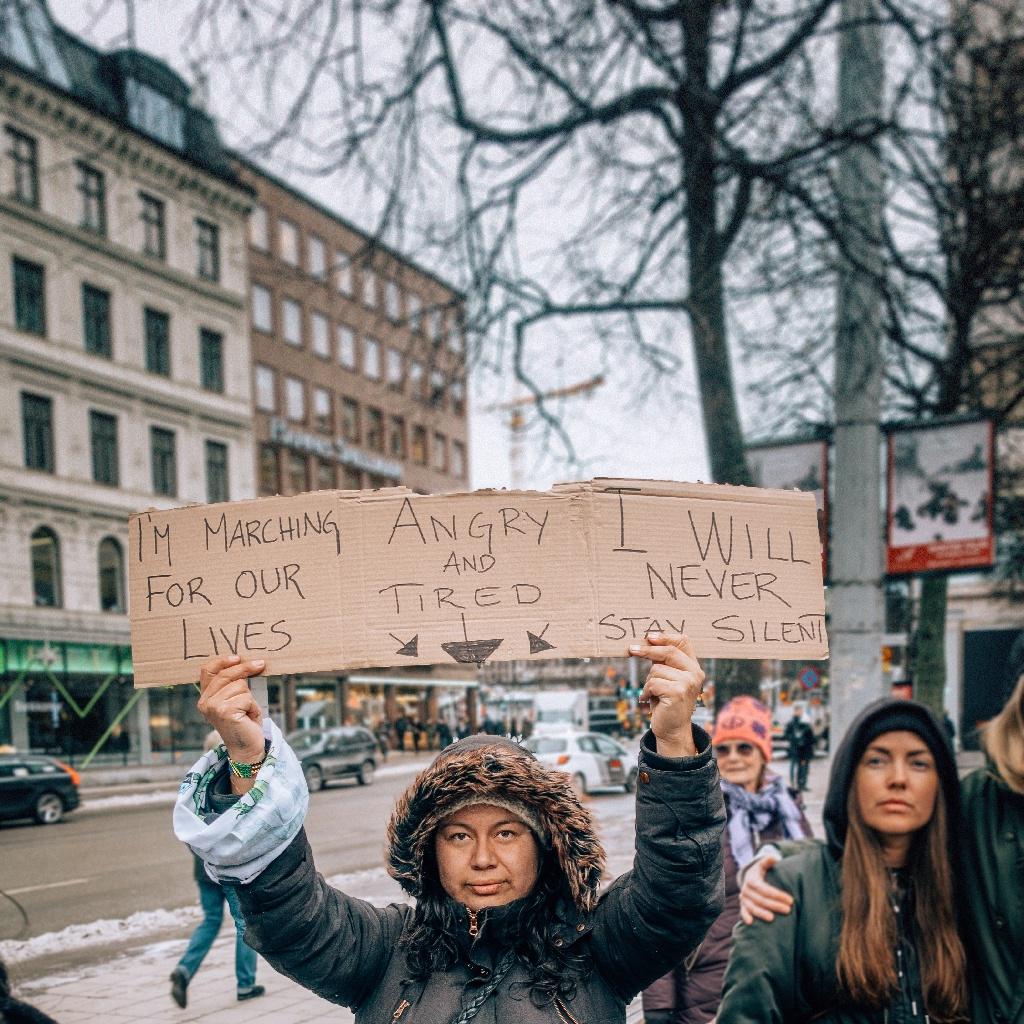 I'M MARCHING
FOR OUR
LIVES
ANGRY
AND
TIRED
I WILL
NEVER
STAY SILENT